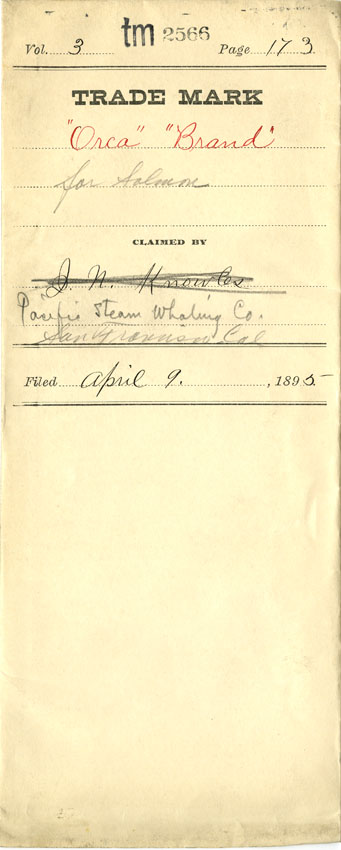 tm 2566
Vol. 3 Page 173
TRADE MARK
"Orca" "Brand"
for Salmon
CLAIMED BY
J. N. Knowles
Pacific Steam Whaling Co.
San Francisco Cal
Filed April 9. , 1895